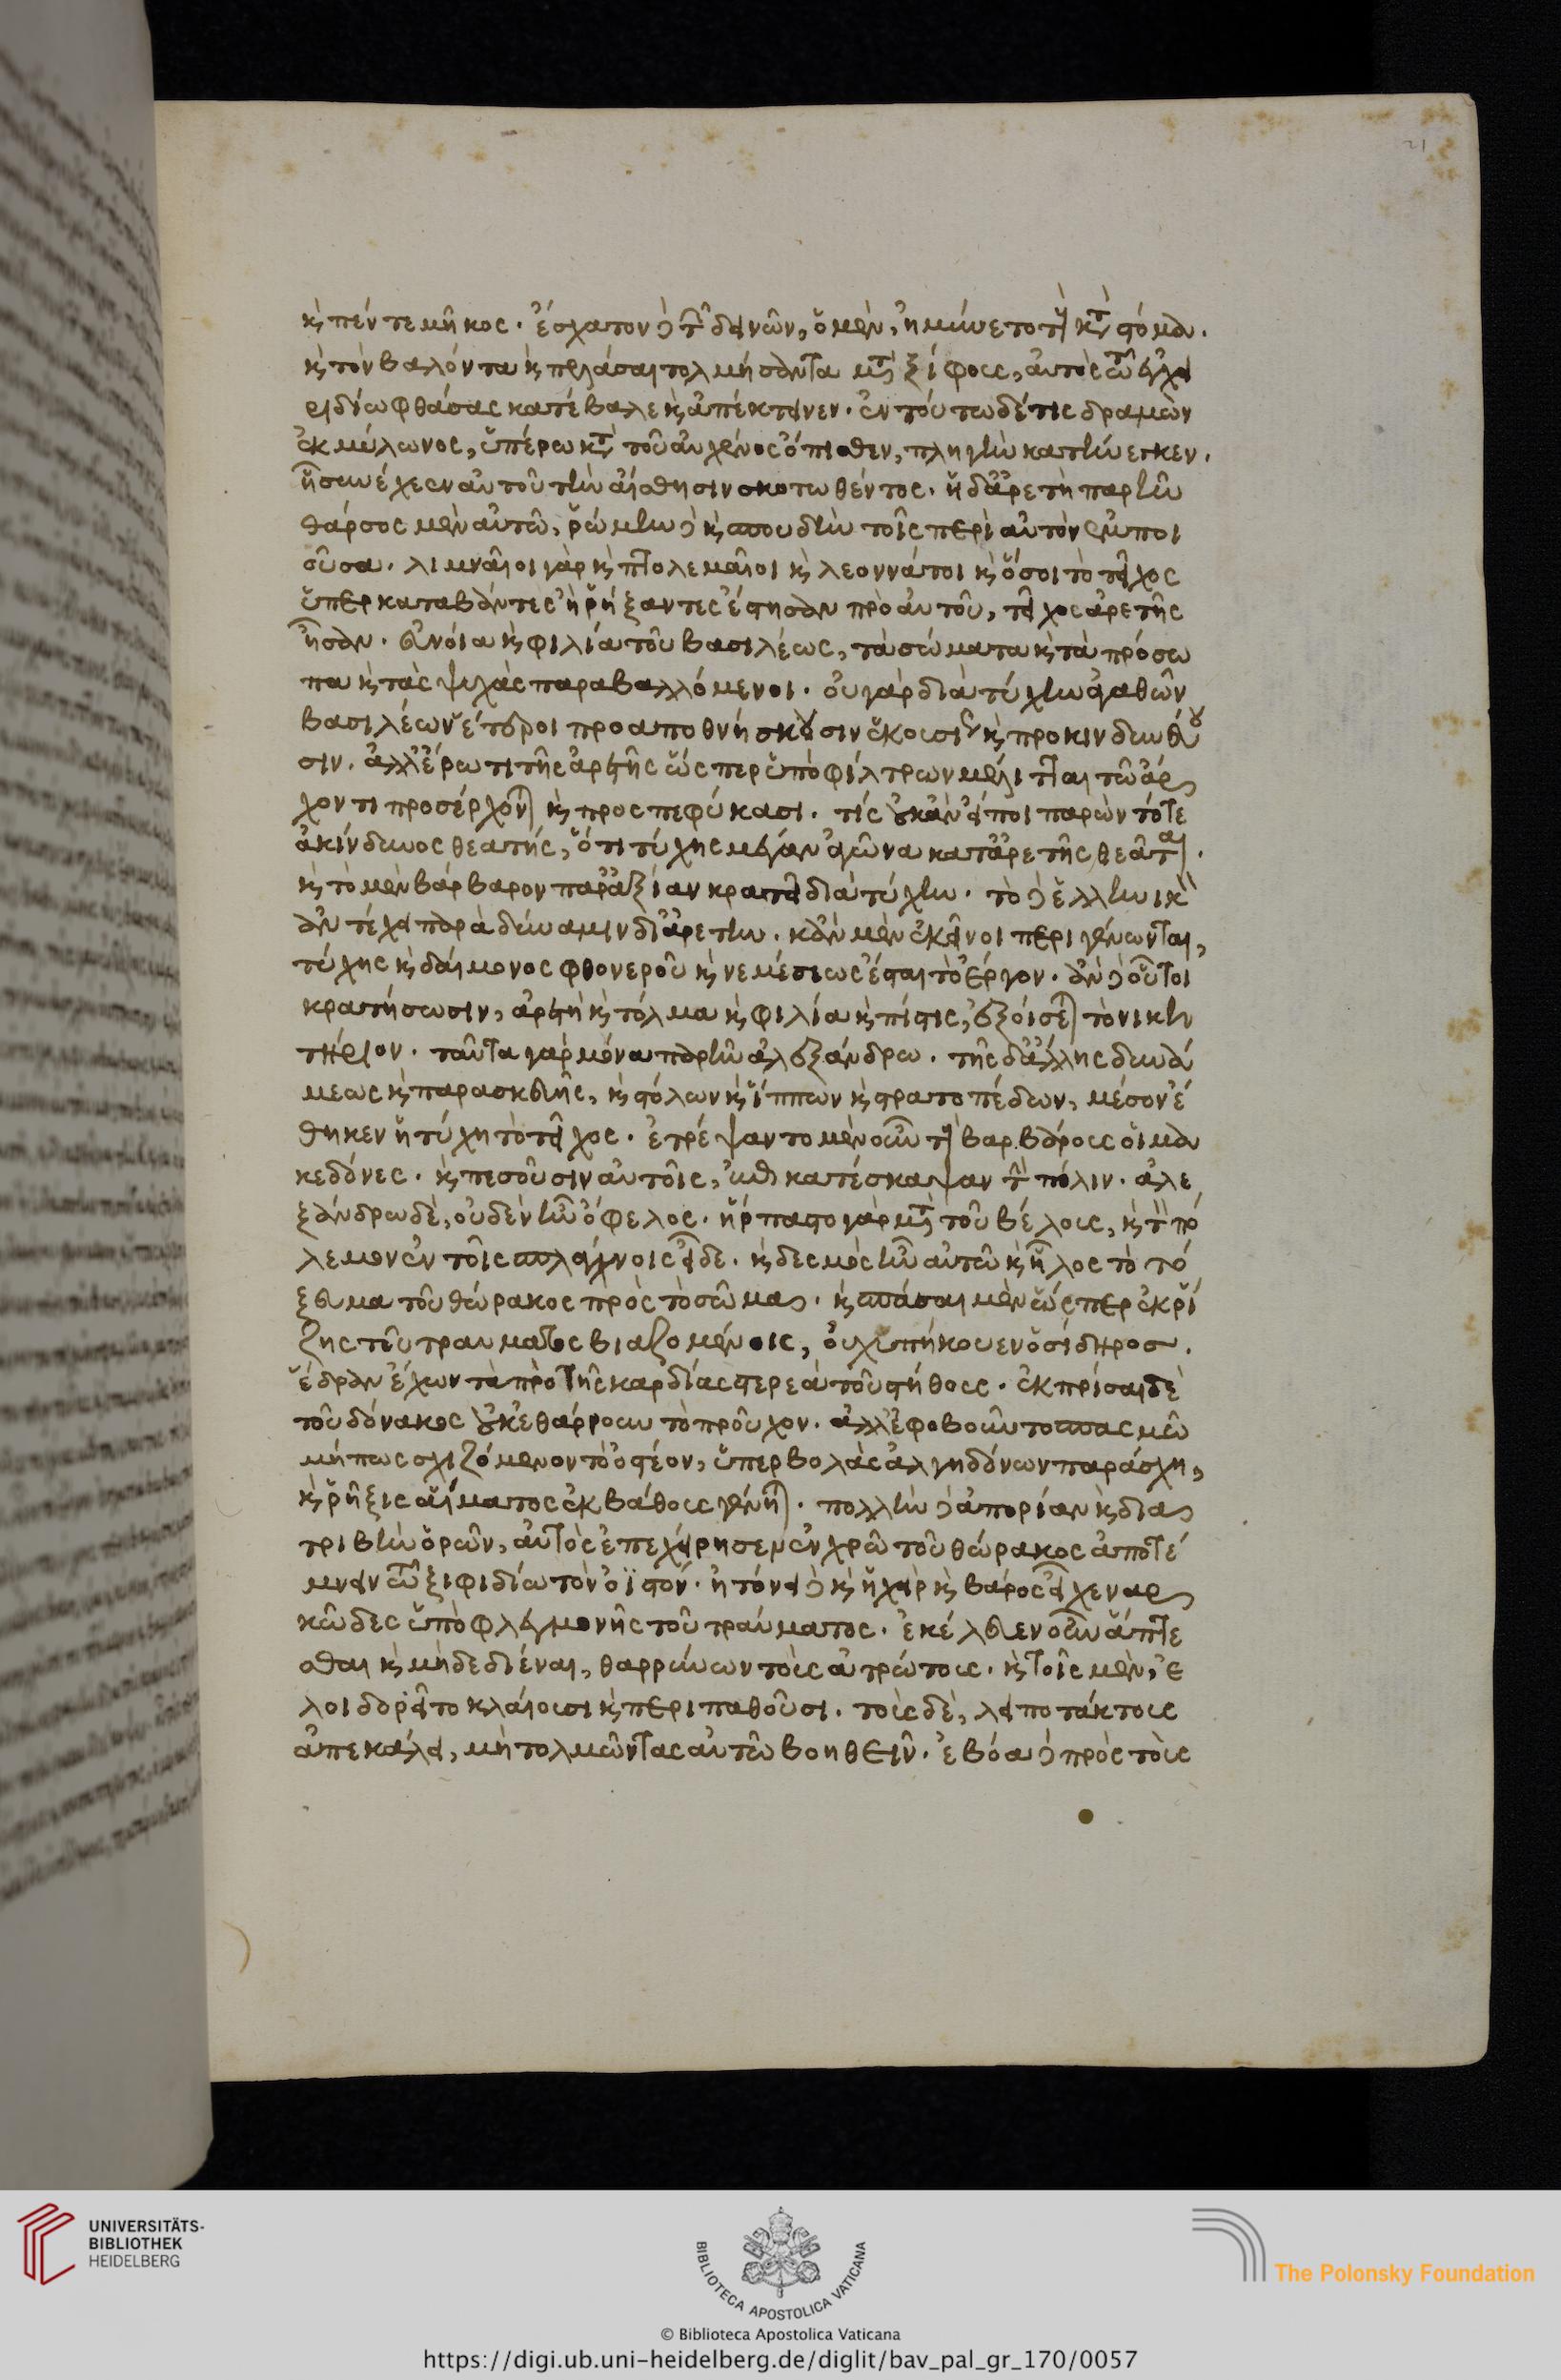 καὶ πέντε μῆκος. ἔσχατον δὲ τῶν δεινῶν, ὁ μὲν, ἠμύνετο τοὺς κατὰ στόμα.
καὶ τὸν βαλόντα καὶ πελάσαι τολμήσαντα μετὰ ξίφους, αὐτὸς τῶ ἐγχει
ριδίω φθάσας κατέβαλε καὶ ἀπέκτεινεν. ἐν τούτω δέ τις δραμὼν
ἐκ μύλωνος, ὑπέρω κατὰ τοῦ αὐχένος ὄπισθεν, πληγὴν κατήνεγκεν.
ἣ συνέχεεν αὐτοῦ τὴν αἴσθησιν σκοτωθέντος. ἡ δ' ἀρετὴ παρῆν
θάρσος μὲν αὐτῶ, ῥώμην δὲ καὶ σπουδὴν τοῖς περὶ αὐτὸν ἐμποι
οῦσα. λιμναῖοι γὰρ καὶ πτολεμαῖοι καὶ λεοννάτοι καὶ ὅσοι τὸ τεῖχος
ὑπερκαταβάντες ἢ ῥήξαντες ἔστησαν πρὸ αὐτοῦ, τεῖχος ἀρετῆς
ἦσαν. εὐνοία καὶ φιλία τοῦ βασιλέως, τὰ σώματα καὶ τὰ πρόσω
πα καὶ τὰς ψυχὰς παραβαλλόμενοι. οὐ γὰρ διὰ τύχην ἀγαθῶν
βασιλέων ἑτέροι προαποθνήσκουσιν ἑκουσίως καὶ προκινδυνεύου
σιν. ἀλλ' ἔρωτι τῆς ἀρετῆς ὥσπερ ὑπὸ φίλτρων μέλιτται τῶ ἄρ
χοντι προσέρχονται καὶ προσπεφύκασι. τίς οὐκ ἂν εἴποι παρὼν τότε
ἀκίνδυνος θεατής, ὅτι τύχης μέγαν ἀγῶνα κατ' ἀρετῆς θεᾶται.
καὶ τὸ μὲν βάρβαρον παρ' ἀξίαν κρατεῖ διὰ τύχην. τὸ δὲ ἑλληνικὸν
ἀντέχει παρὰ δύναμιν δι' ἀρετήν. κἂν μὲν ἐκεῖνοι περιγένωνται,
τύχης καὶ δαίμονος φθονεροῦ καὶ νεμέσεως ἔσται τὸ ἔργον. ἂν δὲ οὗτοι
κρατήσωσιν, ἀρετὴ καὶ τόλμα καὶ φιλία καὶ πίστις, ἐξοίσεται τὸ νικη
τήριον. ταῦτα γὰρ μόνα παρῆν ἀλεξάνδρω. τῆς δ' ἄλλης δυνά
μεως καὶ παρασκευῆς, καὶ στόλων καὶ ἵππων καὶ στρατοπέδων, μέσον ἔ
θηκεν ἡ τύχη τὸ τεῖχος. ἐτρέψαντο μὲν οὖν τοὺς βαρβάρους οἱ μα
κεδόνες. καὶ πεσοῦσιν αὐτοῖς, ἐπικατέσκαψαν τὴν πόλιν. ἀλε
ξάνδρω δὲ, οὐδὲν ἦν ὄφελος. ἥρπαστο γὰρ μετὰ τοῦ βέλους, καὶ τὸν πό
λεμον ἐν τοῖς σπλάγχνοις εἶχε. καὶ δεσμὸς ἦν αὐτῶ καὶ ἧλος τὸ τό
ξευμα τοῦ θώρακος πρὸς τὸ σῶμα. καὶ σπάσαι μὲν ὥσπερ ἐκ ῥί
ζης τοῦ τραύματος βιαζομένοις, οὐχ' ὑπήκουεν ὁ σίδηρος.
ἕδραν ἔχων τὰ πρὸ τῆς καρδίας στερεὰ τοῦ στήθους. ἐκπρίσαι δὲ
τοῦ δόνακος οὐκ ἐθάρρουν τὸ προῦχον. ἀλλ' ἐφοβοῦντο σπασμῶ
μήπως σχιζόμενον τὸ ὀστέον, ὑπερβολὰς ἀλγηδόνων παράσχη,
καὶ ῥῆξις αἵματος ἐκ βάθους γένηται. πολλὴν δὲ ἀπορίαν καὶ δια
τριβὴν ὁρῶν, αὐτὸς ἐπεχείρησεν ἐν χρῶ τοῦ θώρακος ἀποτέ
μνειν τῶ ξιφιδίω τὸν ὀϊστόν. ἠτόνει δὲ καὶ ἡ χεὶρ καὶ βάρος εἶχε ναρ
κῶδες ὑπὸ φλεγμονῆς τοῦ τραύματος. ἐκέλευεν οὖν ἅπτε
σθαι καὶ μὴ δεδιέναι, θαρρύνων τοὺς ἀτρώτους. καὶ τοῖς μὲν, ἐ
λοιδορεῖτο κλαίουσι καὶ περιπαθοῦσι. τοὺς δὲ, λειποτάκτους
ἀπεκάλει, μὴ τολμῶντας αὐτῶ βοηθεῖν. ἐβόα δὲ πρὸς τοὺς
UNIVERSITÄTS-
BIBLIOTHEK
HEIDELBERG
BIBLIOTECA APOSTOLICA VATICANA
The Polonsky Foundation
© Biblioteca Apostolica Vaticana
https://digi.ub.uni-heidelberg.de/diglit/bav_pal_gr_170/0057